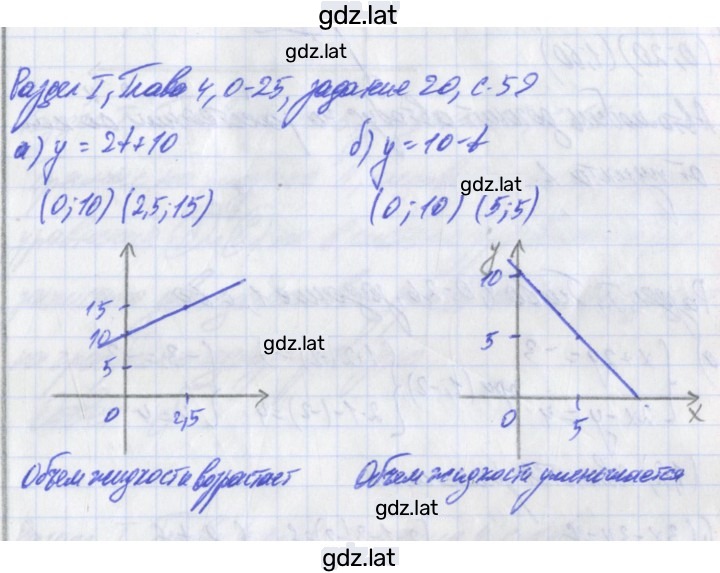 gdz.lat
gdz.lat
Раздел I, Глава 4, О-25, задание 20, с. 59
а) y = 2t+10 б) y = 10-t
gdz.lat
(0;10) (2,5;15) (0;10) (5;5)
y
15 10
10 gdz.lat 5
5
0 2,5 0 5 x
Объем жидкости возрастает Объем жидкости уменьшается
gdz.lat
gdz.lat